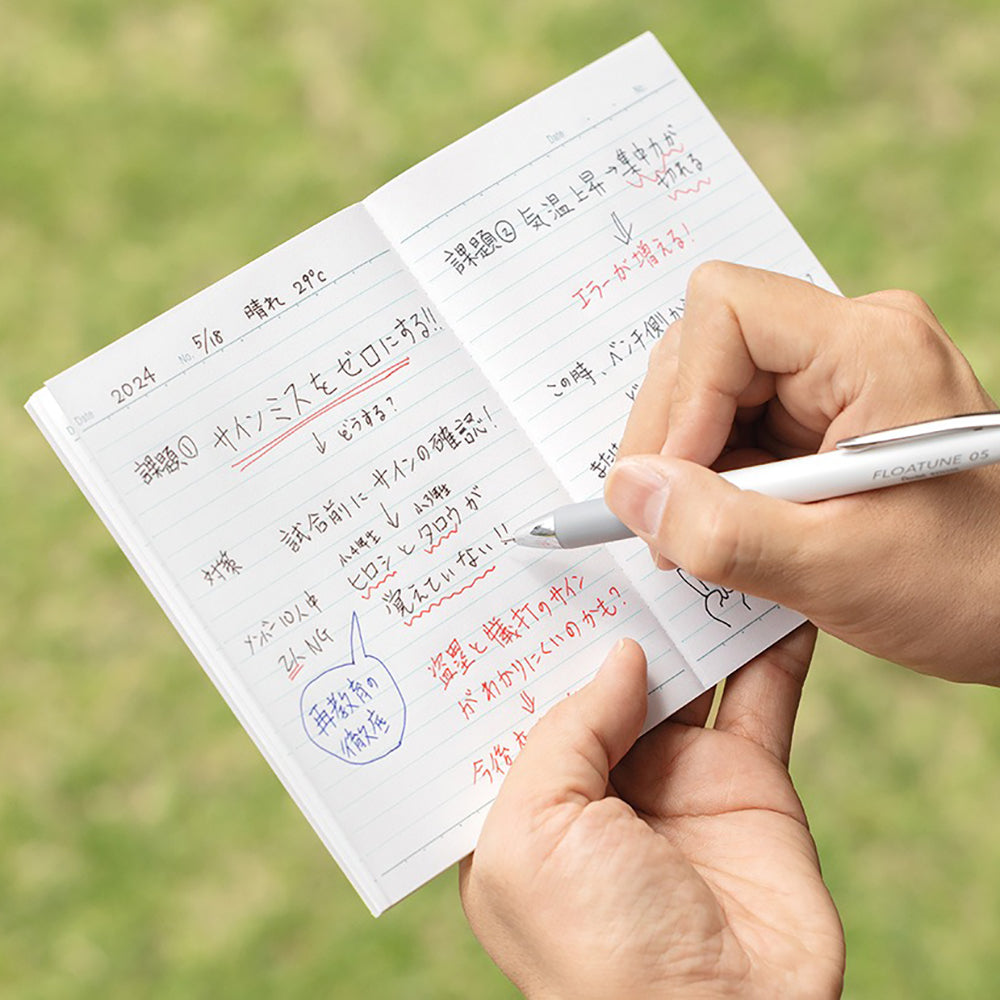 Date
No.
2024
5/18
晴れ
29℃
課題① サインミスをゼロにする!!
↓どうする?
試合前にサインの確認!
対策
↓
小4年生
小3年生
ヒロシとタロウが
覚えていない!!
メンバー10人中
2人NG
再教育の
徹底
盗塁と犠打のサイン
がわかりにくいのかも?
↓
今後
Date
No.
課題② 気温上昇→集中力が
切れる
↓
エラーが増える!
この時、ベンチ側か
または
FLOATUNE 05